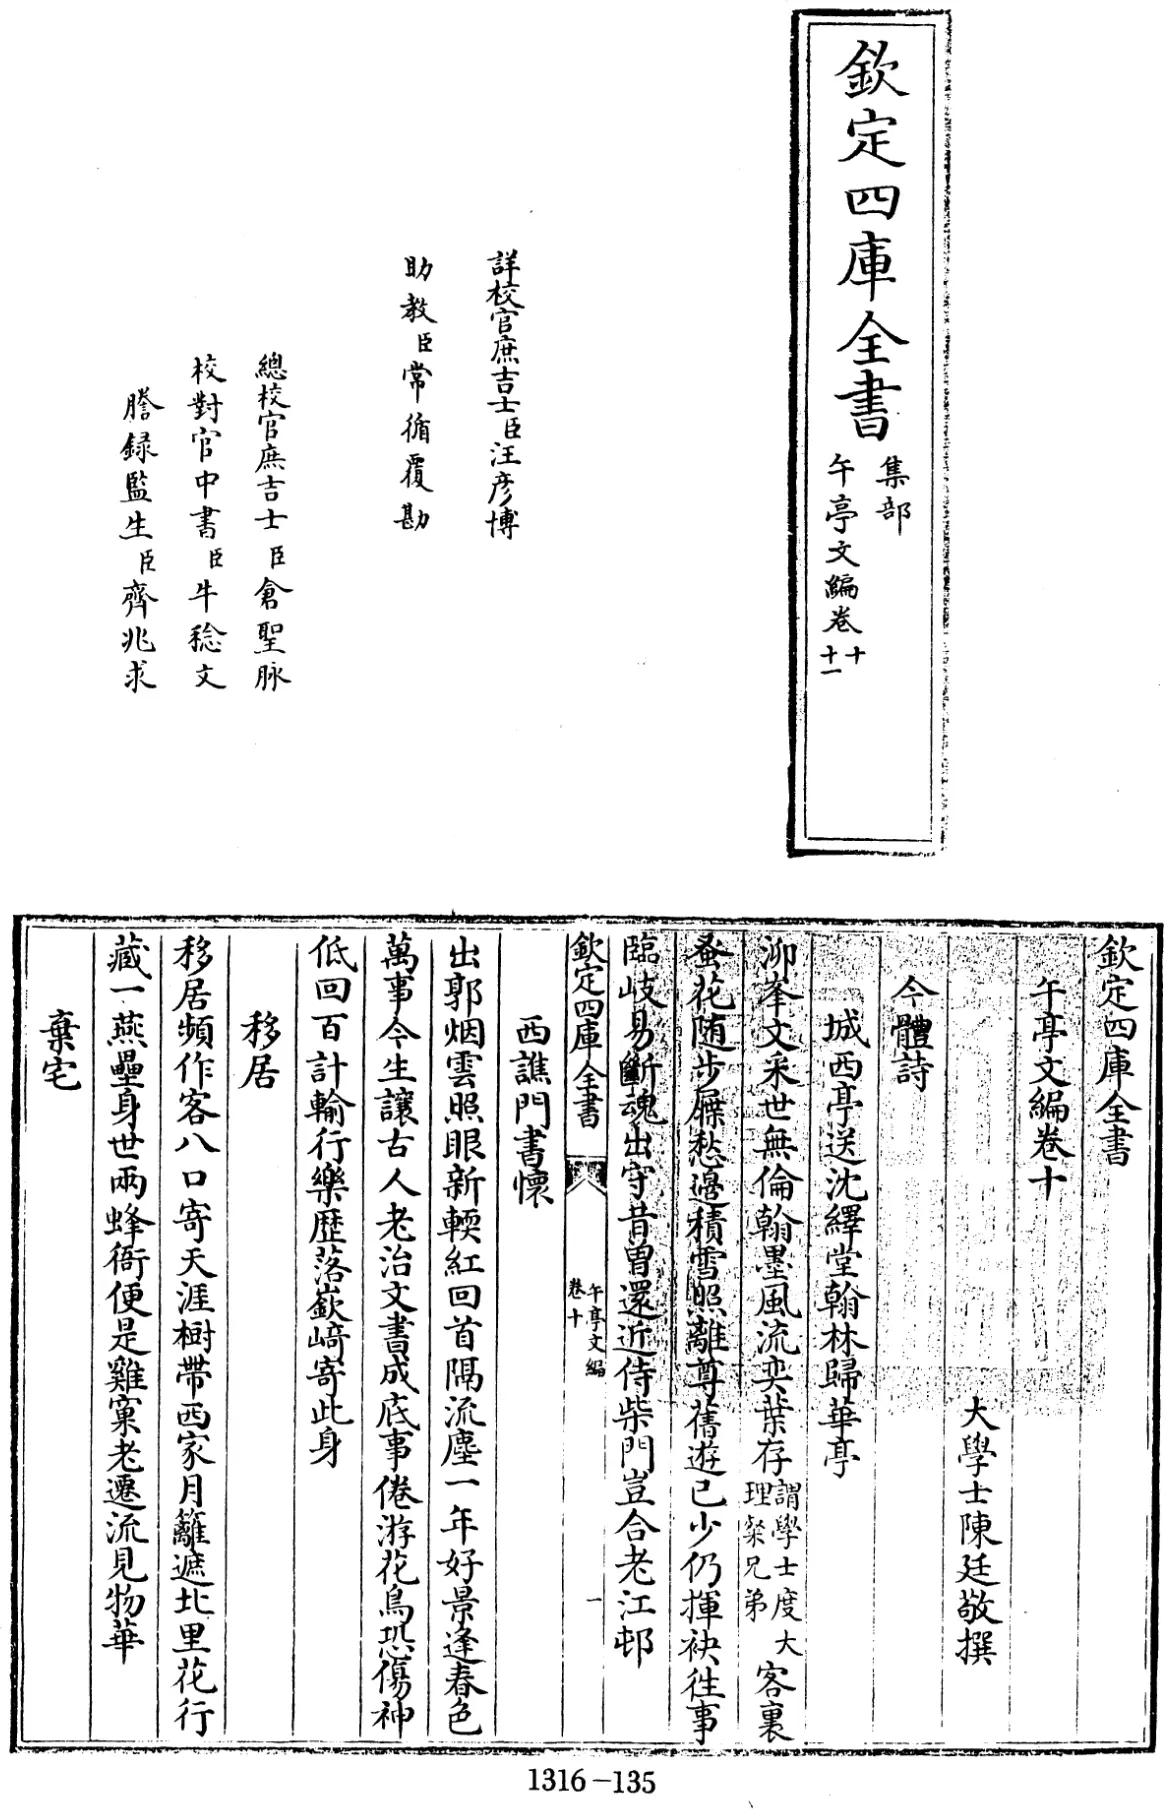 欽定四庫全書
集部
午亭文編卷十
十一
詳校官庶吉士臣汪彥博
助教臣常循覆勘
總校官庶吉士臣倉聖脉
校對官中書臣牛稔文
謄録監生臣齊兆求
欽定四庫全書
午亭文編卷十
大學士陳廷敬撰
今體詩
城西亭送沈繹堂翰林歸華亭
泖峯文采世無倫翰墨風流奕葉存謂學士度大理粲兄弟大客裏
蚤花随步屧愁邉積雪照離尊舊遊已少仍揮袂往事
臨岐易斷魂出守昔曽還近侍柴門豈合老江邨
欽定四庫全書
午亭文編
卷十
一
西譙門書懷
出郭烟雲照眼新輭紅回首隔流塵一年好景逢春色
萬事今生讓古人老治文書成底事倦游花鳥恐傷神
低回百計輸行樂歴落嶔﨑寄此身
移居
移居頻作客八口寄天涯樹帶西家月籬遮北里花行
藏一燕壘身世兩蜂衙便是雞窠老遷流見物華
棄宅
1316-135